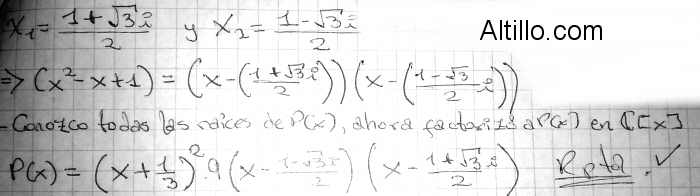 X₁ = (1+√3 i)/2 y X₂ = (1-√3 i)/2
Altillo.com
=> (x²-x+1) = (x-((1+√3 i)/2))(x-((1-√3 i)/2))
- Conozco todas las raíces de P(x), ahora factorizo a P(x) en ℂ[x]
P(x) = (x+1/3)².9(x-(1-√3 i)/2)(x-(1+√3 i)/2) Rpta. ✓